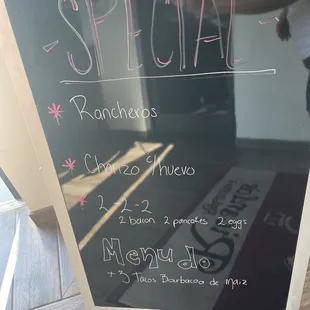 - SPECIAL -
* Rancheros
* Chorizo c/huevo
* 2-2-2
2 bacon 2 pancakes 2 eggs
Menudo
+ 3 Tacos Barbacoa de Maiz